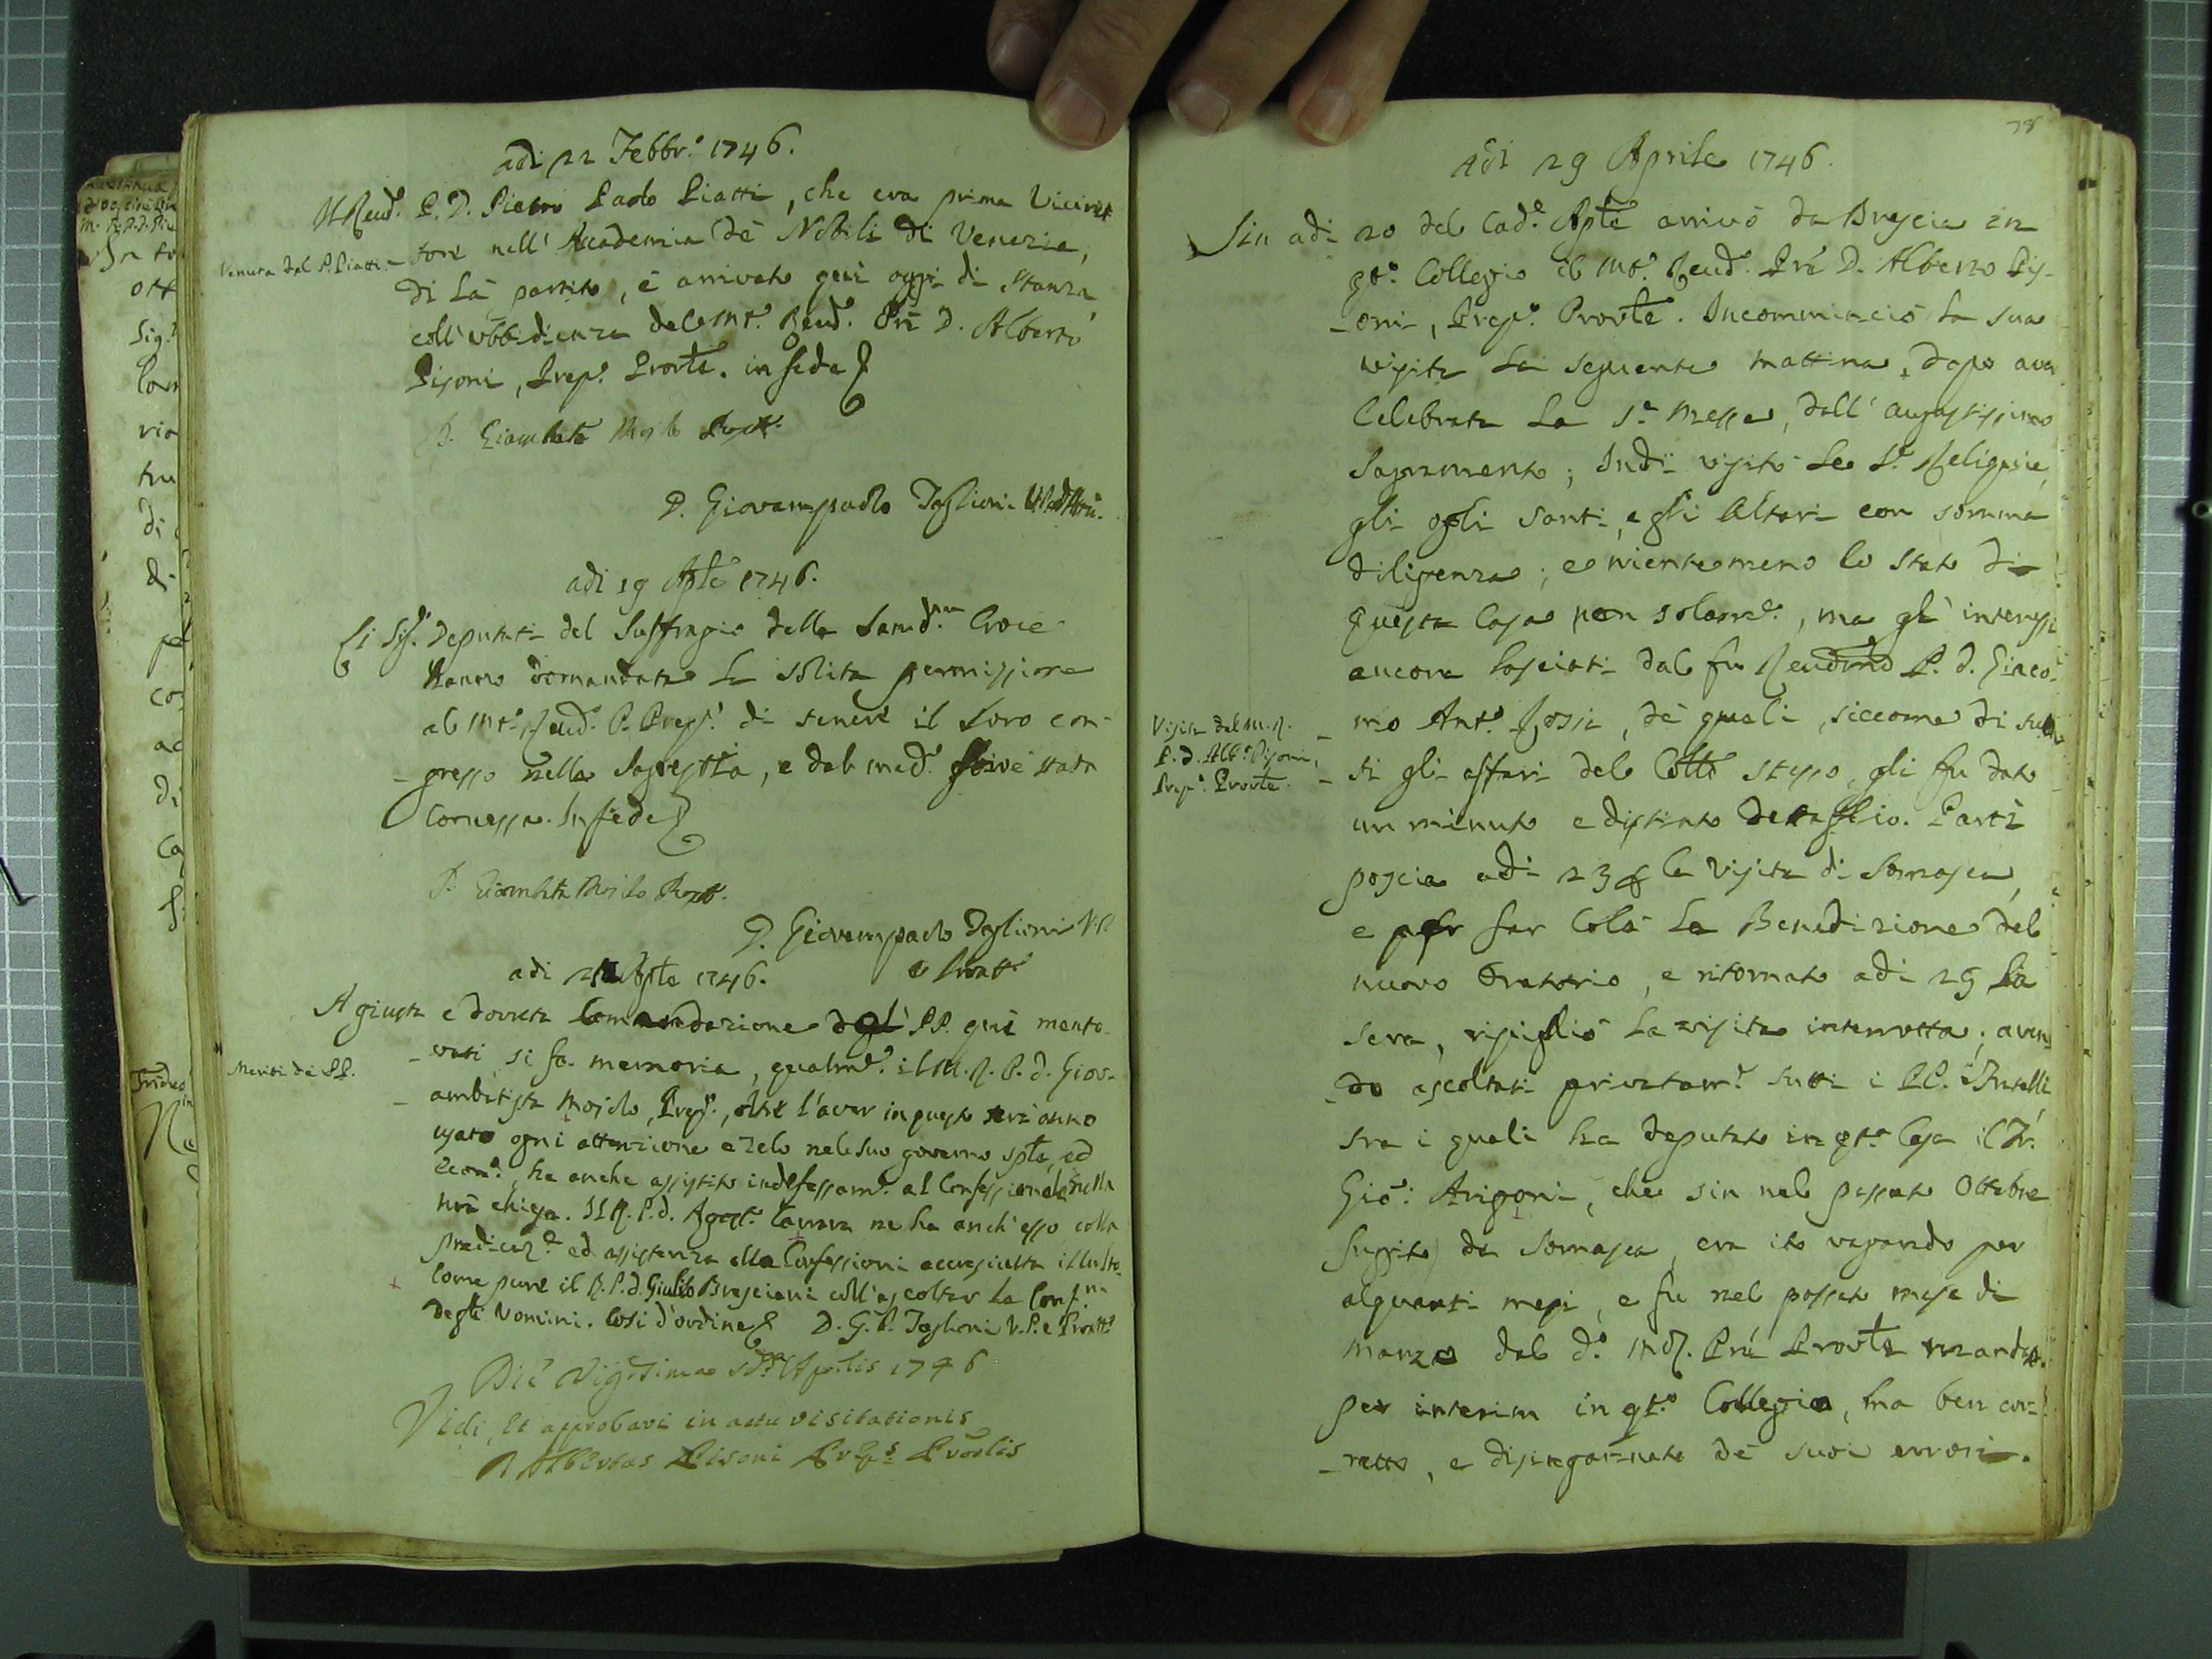 adi 22 Febbr.º 1746.
Il Reud.º P. D. Pietro Paolo Piatti, che era prima Viceret
Venuta del P. Piatti.
-tore nell' Accademia de' Nobili di Venezia,
di là partito, è arrivato quì oggi di stanza
coll' ubbidienza del Mt.º Reud.º Prē D. Alberto
Pisoni, Prep.º Provle. in fede
P. Giambatta Mojolo Prep.to
D. Giovampaolo Taglioni
adi 19 Aple 1746.
Li Sig.ri Deputati del Suffragio della Santiss.ma Croce
hanno domandata la solita permissione
al Mt.º Reud.º P. Prep.º di tenere il loro con-
-gresso nella Sagrestia, e dal med.º è stata
Concessa. In fede
P. Giambatta Mojolo Prep.to
D. Giovampaolo Taglioni V.P.
e Proatt.º
adi Aple 1746.
A giusta e dovuta Commendazione degl' PP. quì mento-
Meriti de' PP.
-vati, si fa memoria, qualm.e il M. R. P. D. Giov-
-ambatista Mojolo, Prep.º, oltre l'aver in questo anno
usato ogni attenzione e zelo nel suo governo sple, ed
Econ.º, ha anche assistito indefessam.e al Confessionale nella
nrā chiesa. Il R. P. D. Agost.º ne ha anch' esso colla
predicaz.e ed assistenza alle Confessioni accresciuta
Come pure il R. P. D. Giulio Bresciani coll' ascoltar le Conf.ni
degli Uomini. Così d'ordine D. G. P. Taglioni V. P. e Proatt.º
Die Vigesima Aprilis 1746
Vidi, et approbavi in actu visitationis
D Albertus Pisoni Prep.s Provlis
78
Adi 29 Aprile 1746.
Sin adi 20 del cad.e Aple arrivò da Brescia in
qt.º Collegio il Mt.º Reud.º Prē D. Alberto Pis-
-oni, Prep.º Provle. Incominciò la sua
visita la seguente mattina, dopo aver
celebrata la S.a Messa, dall' augustissimo
Sagramento; Indi visitò le S.e Reliquie,
gli ogli santi, e gli Altari con somma
diligenza; e nientemeno lo stato di
questa Casa non solam.e, ma gl' interessi
ancora lasciati dal fu Reudmo P. D. Giaco-
Visita del M. R.
P. D. Alb.º Pisoni,
Prep.º Provle.
-mo Ant.º, de' quali, siccome di tut-
-ti gli affari del Collº stesso, gli fu dato
un minuto e distinto dettaglio. Partì
poscia adi 23 p la visita di Somasca,
e per far colà la Benedizione del
nuovo Oratorio, e ritornato adi 29 la
sera, ripigliò la visita interrotta; aven-
-do ascoltati privatam.e tutti i PP. e Fratelli
tra i quali ha deputato in qt.a Casa il Fr.
Gio: Arigoni, che sin nel passato Ottobre
fuggito da Somasca, era ito vagando per
alquanti mesi, e fu nel passato mese di
Marzo dal d.º M. R. Prē Provle mandato
per interim in qt.º Collegio, ma ben cor-
-retto, e disingannato de' suoi errori.